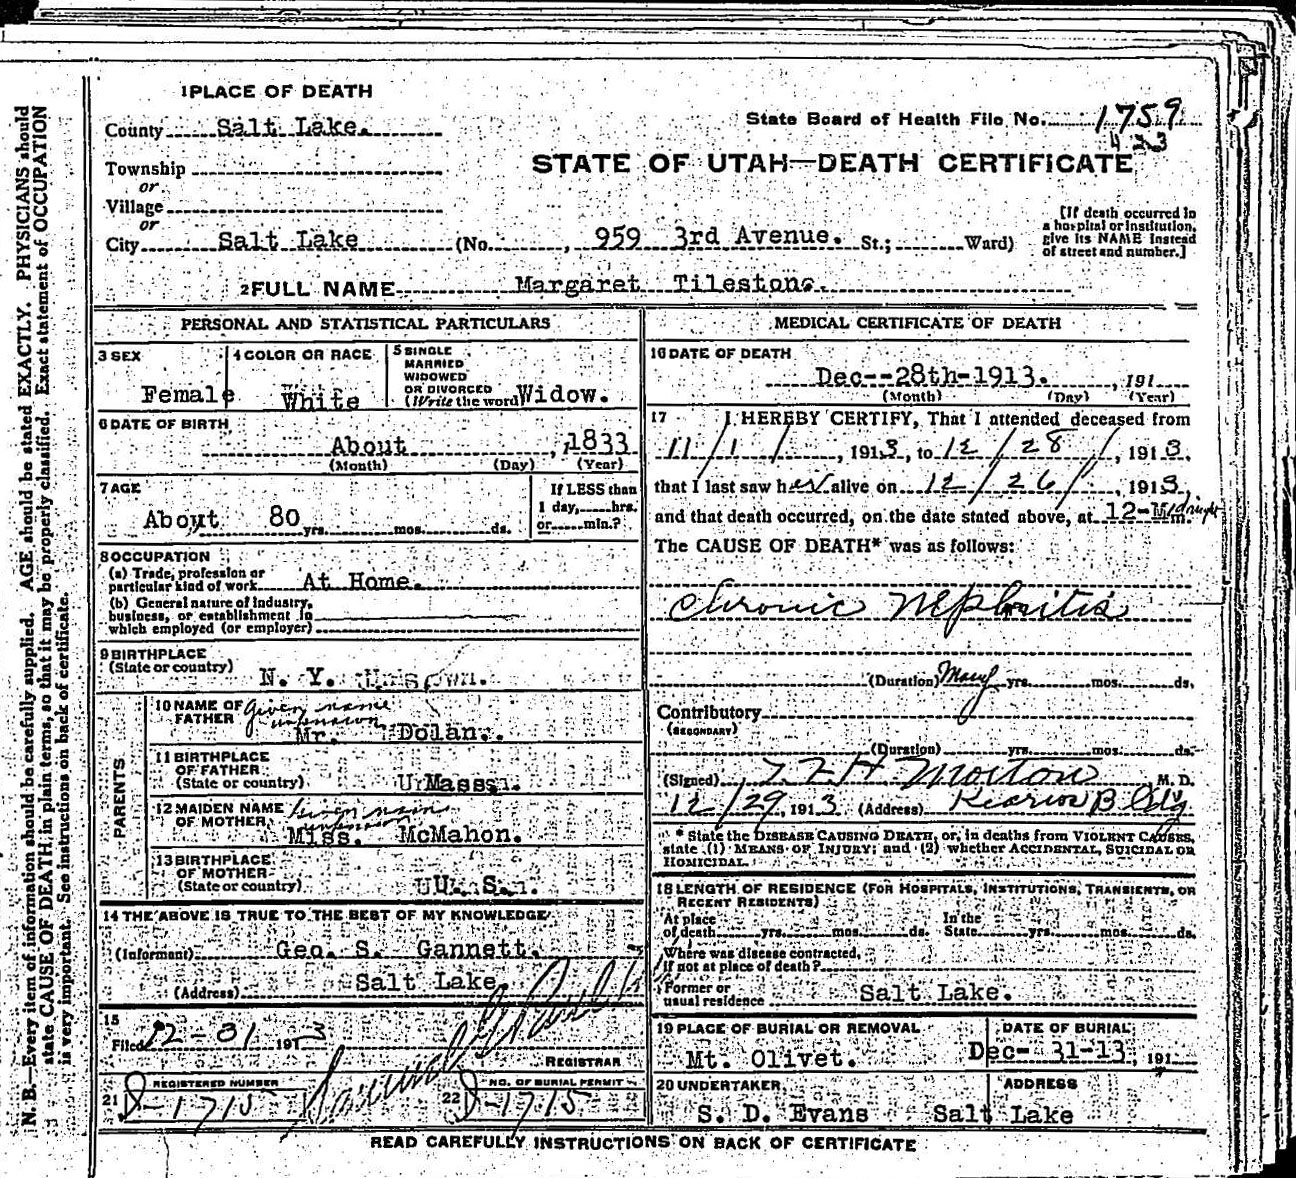 1 PLACE OF DEATH
County Salt Lake.
State Board of Health File No. 1759
423
Township
or
STATE OF UTAH—DEATH CERTIFICATE
Village
or
City Salt Lake (No. , 959 3rd Avenue. St.; Ward)
[If death occurred in
a hospital or institution,
give its NAME instead
of street and number.]
2 FULL NAME Margaret Tilestone.
PERSONAL AND STATISTICAL PARTICULARS
3 SEX
Female
4 COLOR OR RACE
White
5 SINGLE
MARRIED
WIDOWED
OR DIVORCED
(Write the word) Widow.
6 DATE OF BIRTH
About , 1833
(Month) (Day) (Year)
7 AGE
About 80 yrs. mos. ds.
If LESS than
1 day, hrs.
or min.?
8 OCCUPATION
(a) Trade, profession or
particular kind of work At Home.
(b) General nature of industry,
business, or establishment in
which employed (or employer)
9 BIRTHPLACE
(State or country) N. Y.
PARENTS
10 NAME OF FATHER Given name
unknown
Mr. Dolan.
11 BIRTHPLACE
OF FATHER
(State or country) Mass.
12 MAIDEN NAME
OF MOTHER Given name
Miss. McMahon.
13 BIRTHPLACE
OF MOTHER
(State or country) U. S.
14 THE ABOVE IS TRUE TO THE BEST OF MY KNOWLEDGE
(Informant) Geo. S. Gannett.
(Address) Salt Lake.
15
Filed 12-31 1913
REGISTRAR
REGISTERED NUMBER
21 D-1715
NO. OF BURIAL PERMIT
22 D-1715
MEDICAL CERTIFICATE OF DEATH
16 DATE OF DEATH
Dec--28th-1913. , 191
(Month) (Day) (Year)
17 I HEREBY CERTIFY, That I attended deceased from
11/1/, 1913, to 12/28/, 1913,
that I last saw her alive on 12/26/, 1913,
and that death occurred, on the date stated above, at 12-Midnight m.
The CAUSE OF DEATH* was as follows:
Chronic Nephritis
(Duration) Many yrs. mos. ds.
Contributory
(SECONDARY)
(Duration) yrs. mos. ds.
(Signed) Morton M. D.
12/29, 1913 (Address) Kearns Bldg
* State the DISEASE CAUSING DEATH, or, in deaths from VIOLENT CAUSES,
state (1) MEANS OF INJURY; and (2) whether ACCIDENTAL, SUICIDAL OR
HOMICIDAL.
18 LENGTH OF RESIDENCE (FOR HOSPITALS, INSTITUTIONS, TRANSIENTS, OR
RECENT RESIDENTS)
At place In the
of death yrs. mos. ds. State yrs. mos. ds.
Where was disease contracted,
If not at place of death?
Former or
usual residence Salt Lake.
19 PLACE OF BURIAL OR REMOVAL
Mt. Olivet.
DATE OF BURIAL
Dec- 31-13, 191
20 UNDERTAKER
S. D. Evans
ADDRESS
Salt Lake
READ CAREFULLY INSTRUCTIONS ON BACK OF CERTIFICATE
N. B.—Every item of information should be carefully supplied. AGE should be stated EXACTLY. PHYSICIANS should
state CAUSE OF DEATH in plain terms, so that it may be properly classified. Exact statement of OCCUPATION
is very important. See instructions on back of certificate.